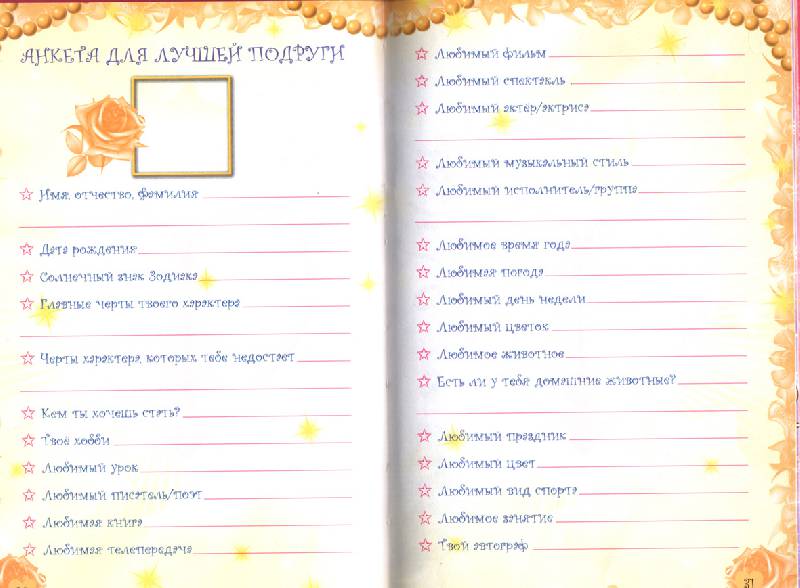 АНКЕТА ДЛЯ ЛУЧШЕЙ ПОДРУГИ
Имя, отчество, фамилия
Дата рождения
Солнечный знак Зодиака
Главные черты твоего характера
Черты характера, которых тебе недостает
Кем ты хочешь стать?
Твоё хобби
Любимый урок
Любимый писатель/поэт
Любимая книга
Любимая телепередача
Любимый фильм
Любимый спектакль
Любимый актёр/актриса
Любимый музыкальный стиль
Любимый исполнитель/группа
Любимое время года
Любимая погода
Любимый день недели
Любимый цветок
Любимое животное
Есть ли у тебя домашние животные?
Любимый праздник
Любимый цвет
Любимый вид спорта
Любимое занятие
Твой автограф